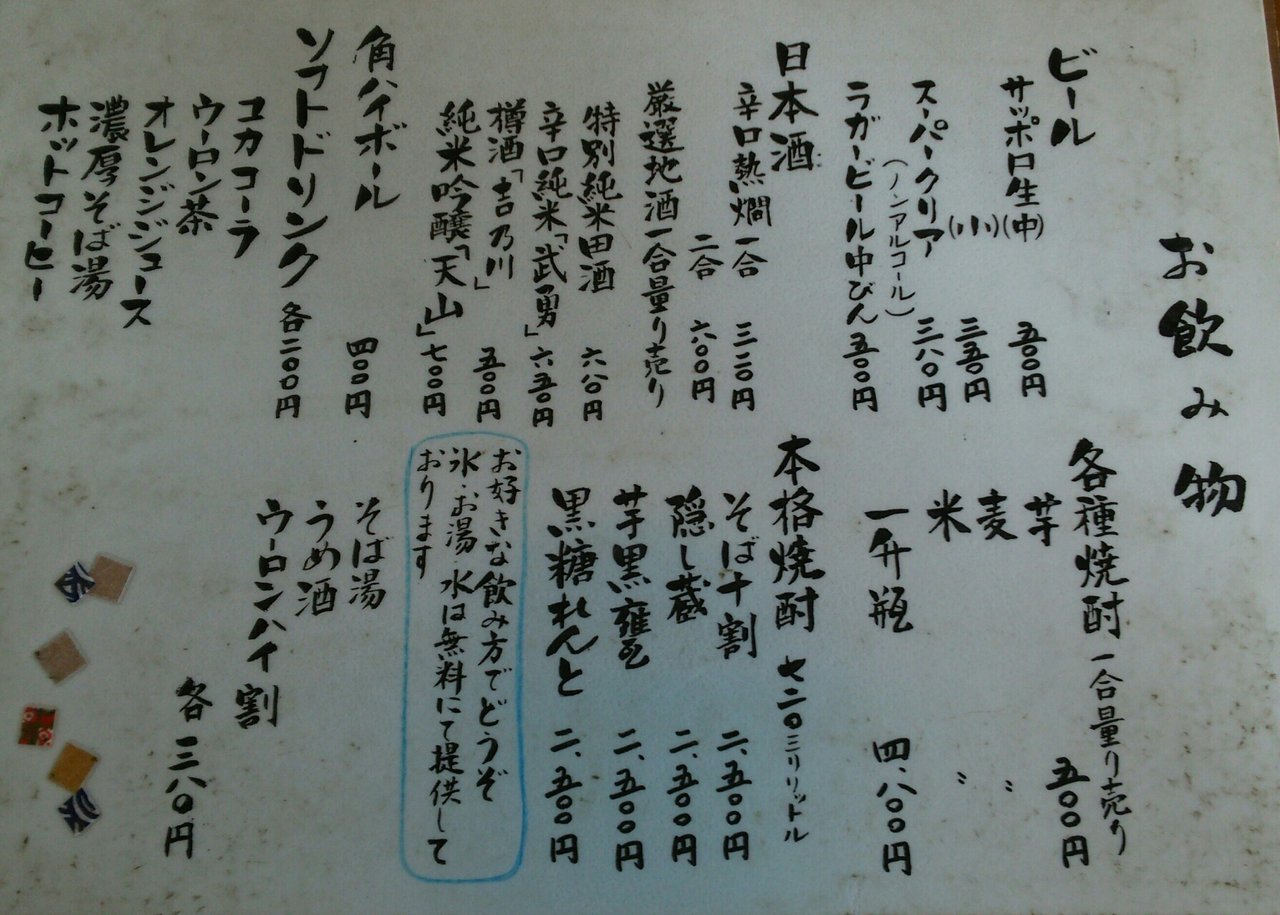 お飲み物
ビール
サッポロ生(中) 五〇〇円
(小) 三五〇円
スーパークリア 三八〇円
(ノンアルコール)
ラガービール中びん 五〇〇円
日本酒
辛口熱燗 一合 三二〇円
二合 六〇〇円
厳選地酒一合量り売り
特別純米田酒 六八〇円
辛口純米「武勇」 六五〇円
樽酒「吉乃川」 五〇〇円
純米吟醸「天山」 七〇〇円
角ハイボール 四〇〇円
ソフトドリンク 各二〇〇円
コカコーラ
ウーロン茶
オレンジジュース
濃厚そば湯
ホットコーヒー
各種焼酎 一合量り売り
芋 五〇〇円
麦 〃
米 〃
一升瓶 四、八〇〇円
本格焼酎 七二〇ミリリットル
そば十割 二、五〇〇円
隠し蔵 二、五〇〇円
芋黒甕 二、五〇〇円
黒糖れんと 二、五〇〇円
お好きな飲み方でどうぞ
氷・お湯・水は無料にて提供して
おります
そば湯
うめ酒
ウーロンハイ割
各三八〇円